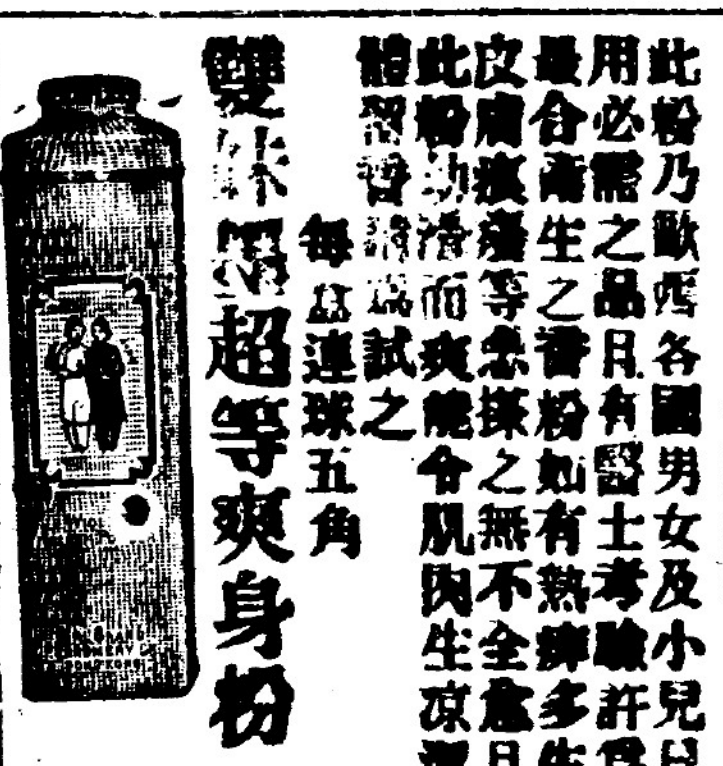 此粉乃歐西各國男女及小兒日
用必需之品且有醫士考驗許爲
最合衛生之香粉如有熱痱多生
皮膚痕癢等患搽之無不全愈且
此粉幼滑而爽能令肌肉生凉
體留香請爲試之
每盒連球五角
雙妹嚜超等爽身粉
BRAND
HONGKONG